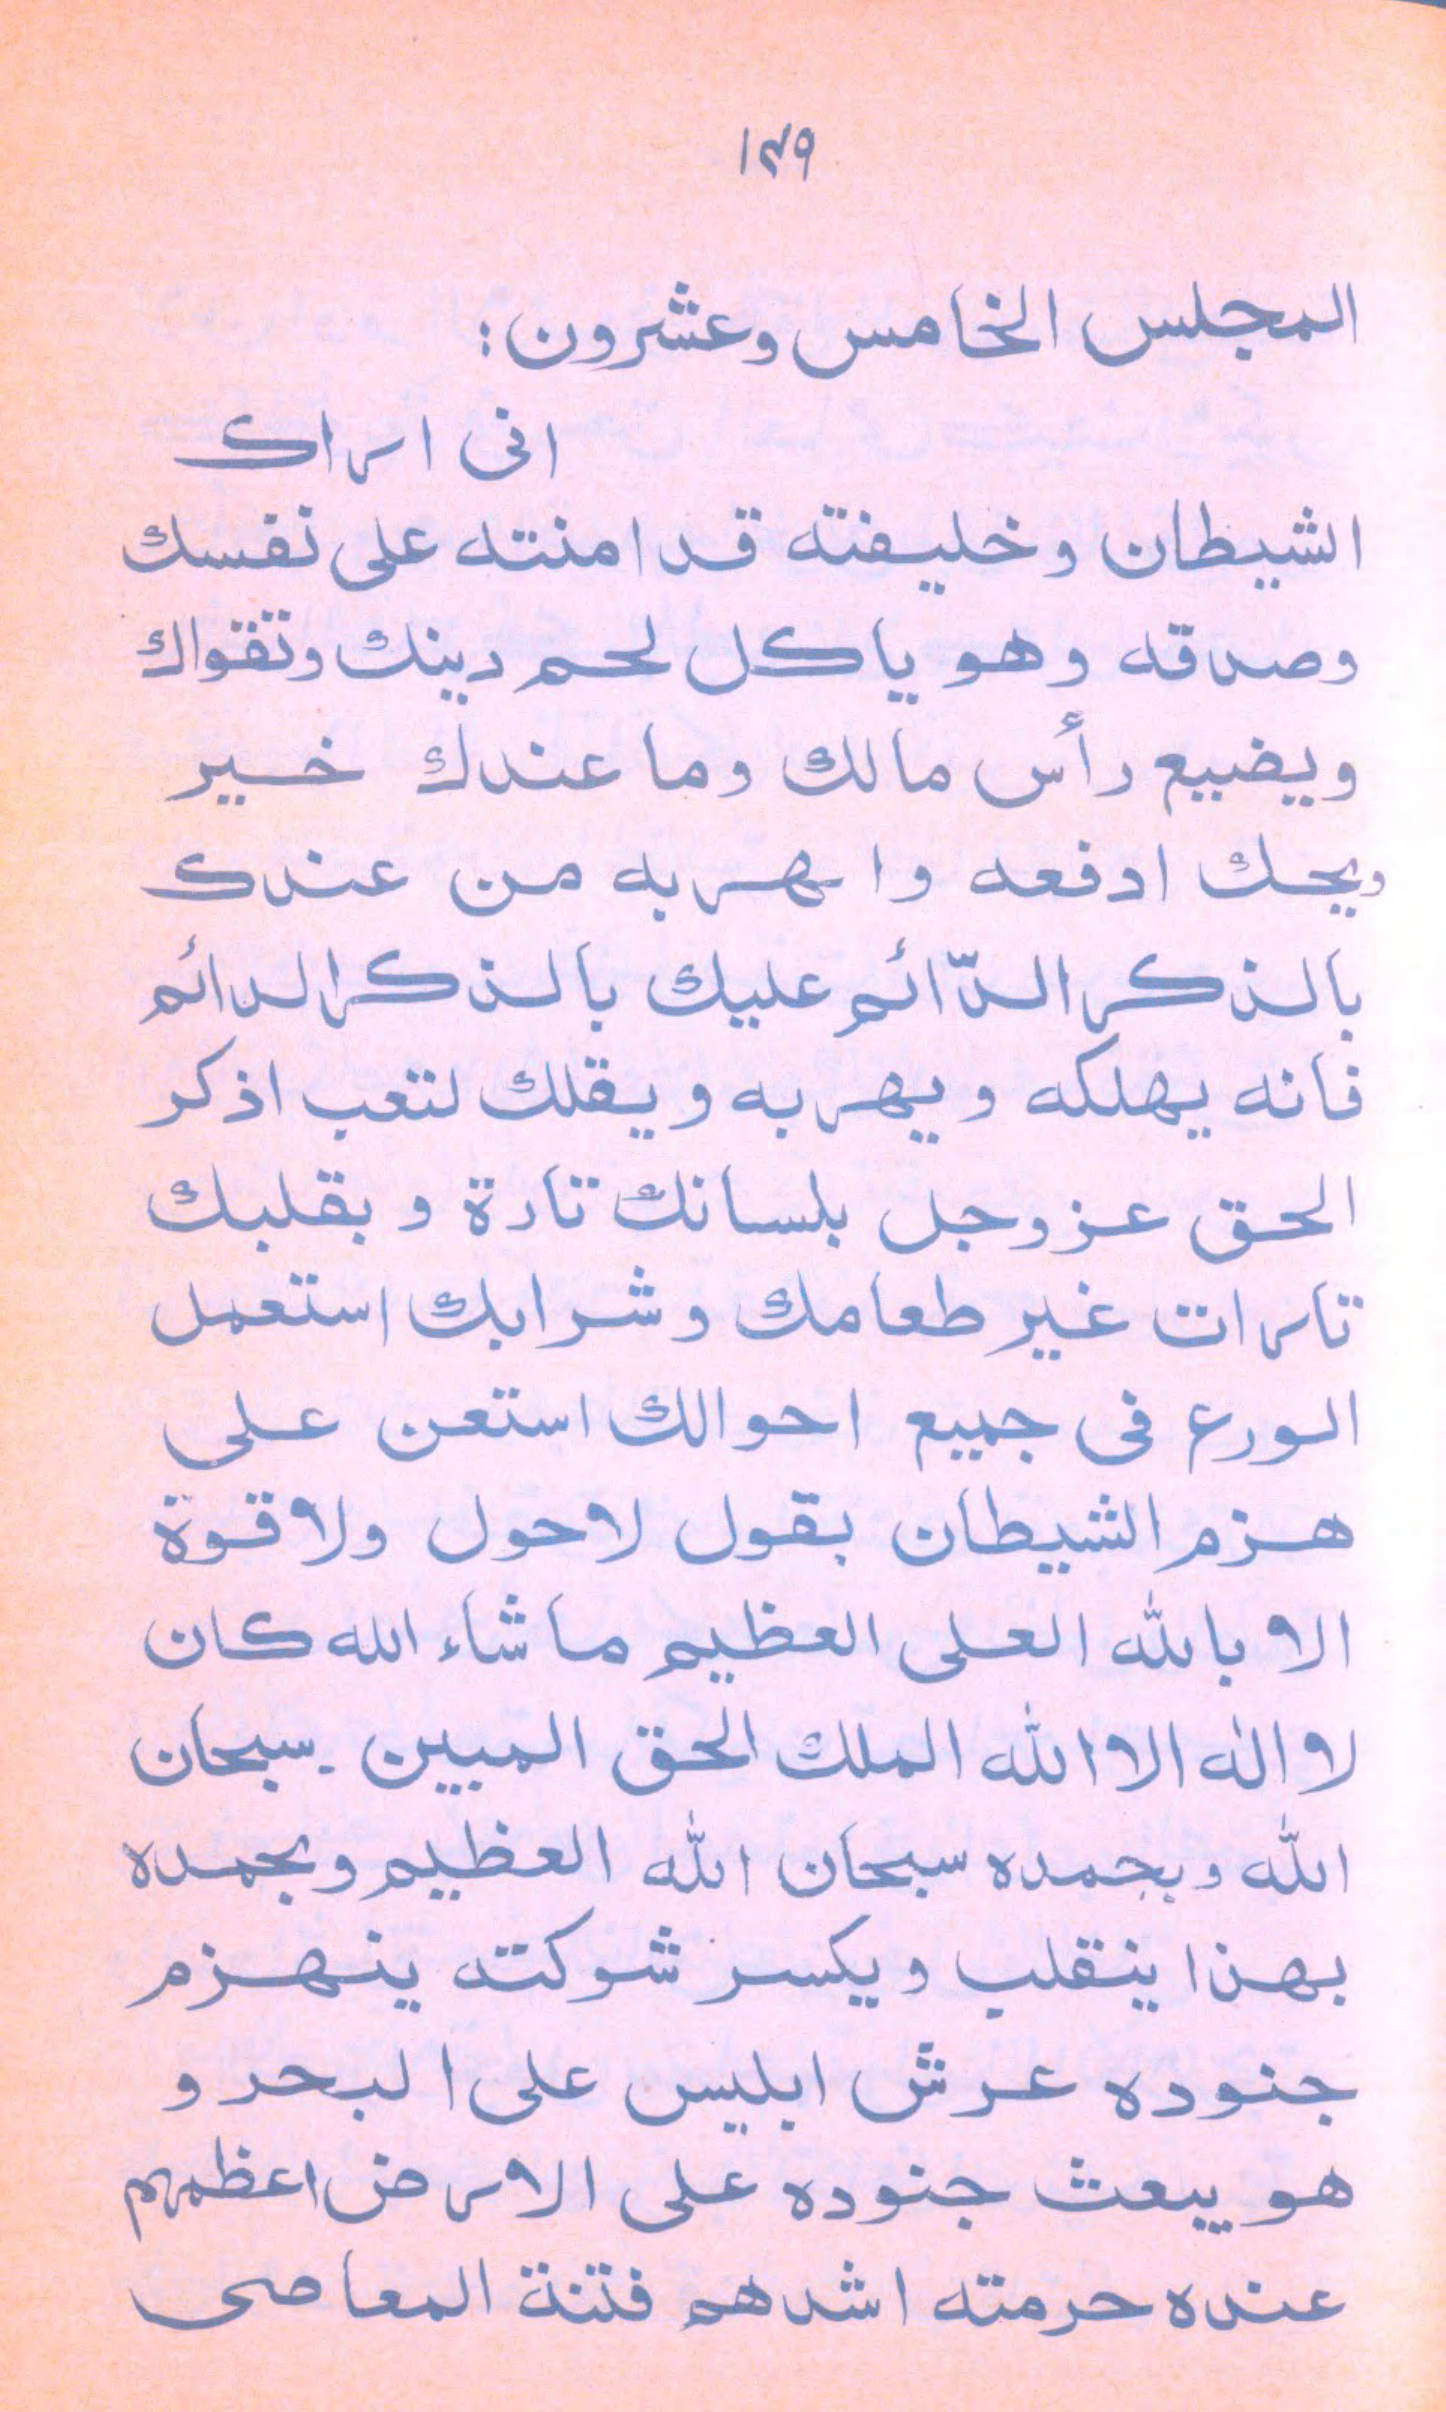 ١٢٩
المجلس الخامس وعشرون:
انى اراك
الشيطان وخليفته قد امنته على نفسك
وصدقه وهو ياكل لحم دينك وتقواك
ويضيع رأس مالك وما عندك خير
ويحك ادفعه واهربه من عندك
بالذكر الدّائم عليك بالذكر الدائم
فانه يهلكه ويهربه ويقلك لتعب اذكر
الحق عزوجل بلسانك تارة وبقلبك
تارات غير طعامك وشرابك استعمل
الورع فى جميع احوالك استعن على
هزم الشيطان بقول لاحول ولاقوة
الا بالله العلى العظيم ماشاء الله كان
لا اله الا الله الملك الحق المبين . سبحان
الله وبحمده سبحان الله العظيم وبحمده
بهذا ينقلب ويكسر شوكته ينهزم
جنوده عرش ابليس على البحر و
هو يبعث جنوده على الارض اعظمهم
عنده حرمته اشدهم فتنة المعاصى